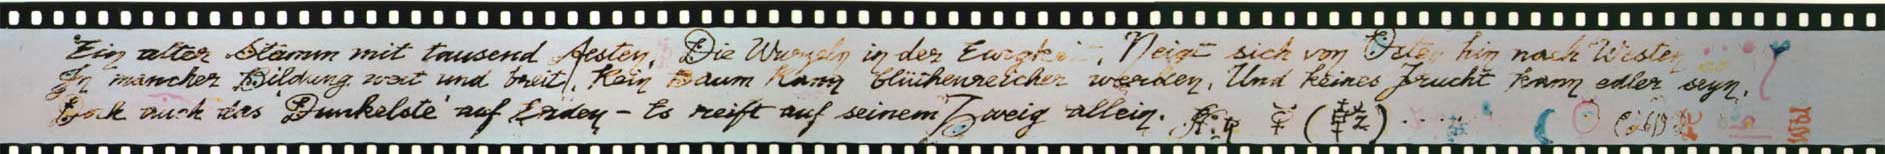 Ein alter Stamm mit tausend Aesten, Die Wurzeln in der Ewigkeit, Neigt sich von Osten hin nach Westen
In mancher Bildung weit und breit. Kein Baum kann blüthenreicher werden, Und keines Frucht kann edler seyn,
Doch auch das "Dunkelste" auf Erden – Es reift auf seinem Zweig allein.